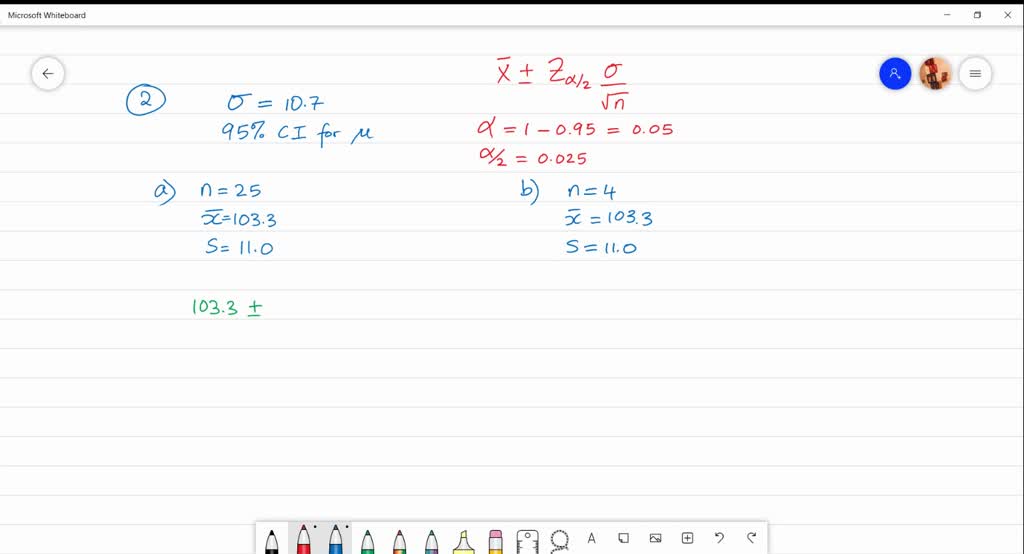 Microsoft Whiteboard
x̄ ± Zα/2 σ/√n
② σ = 10.7
95% CI for μ
α = 1 - 0.95 = 0.05
α/2 = 0.025
a) n = 25
x̄ = 103.3
S = 11.0
b) n = 4
x̄ = 103.3
S = 11.0
103.3 ±
A